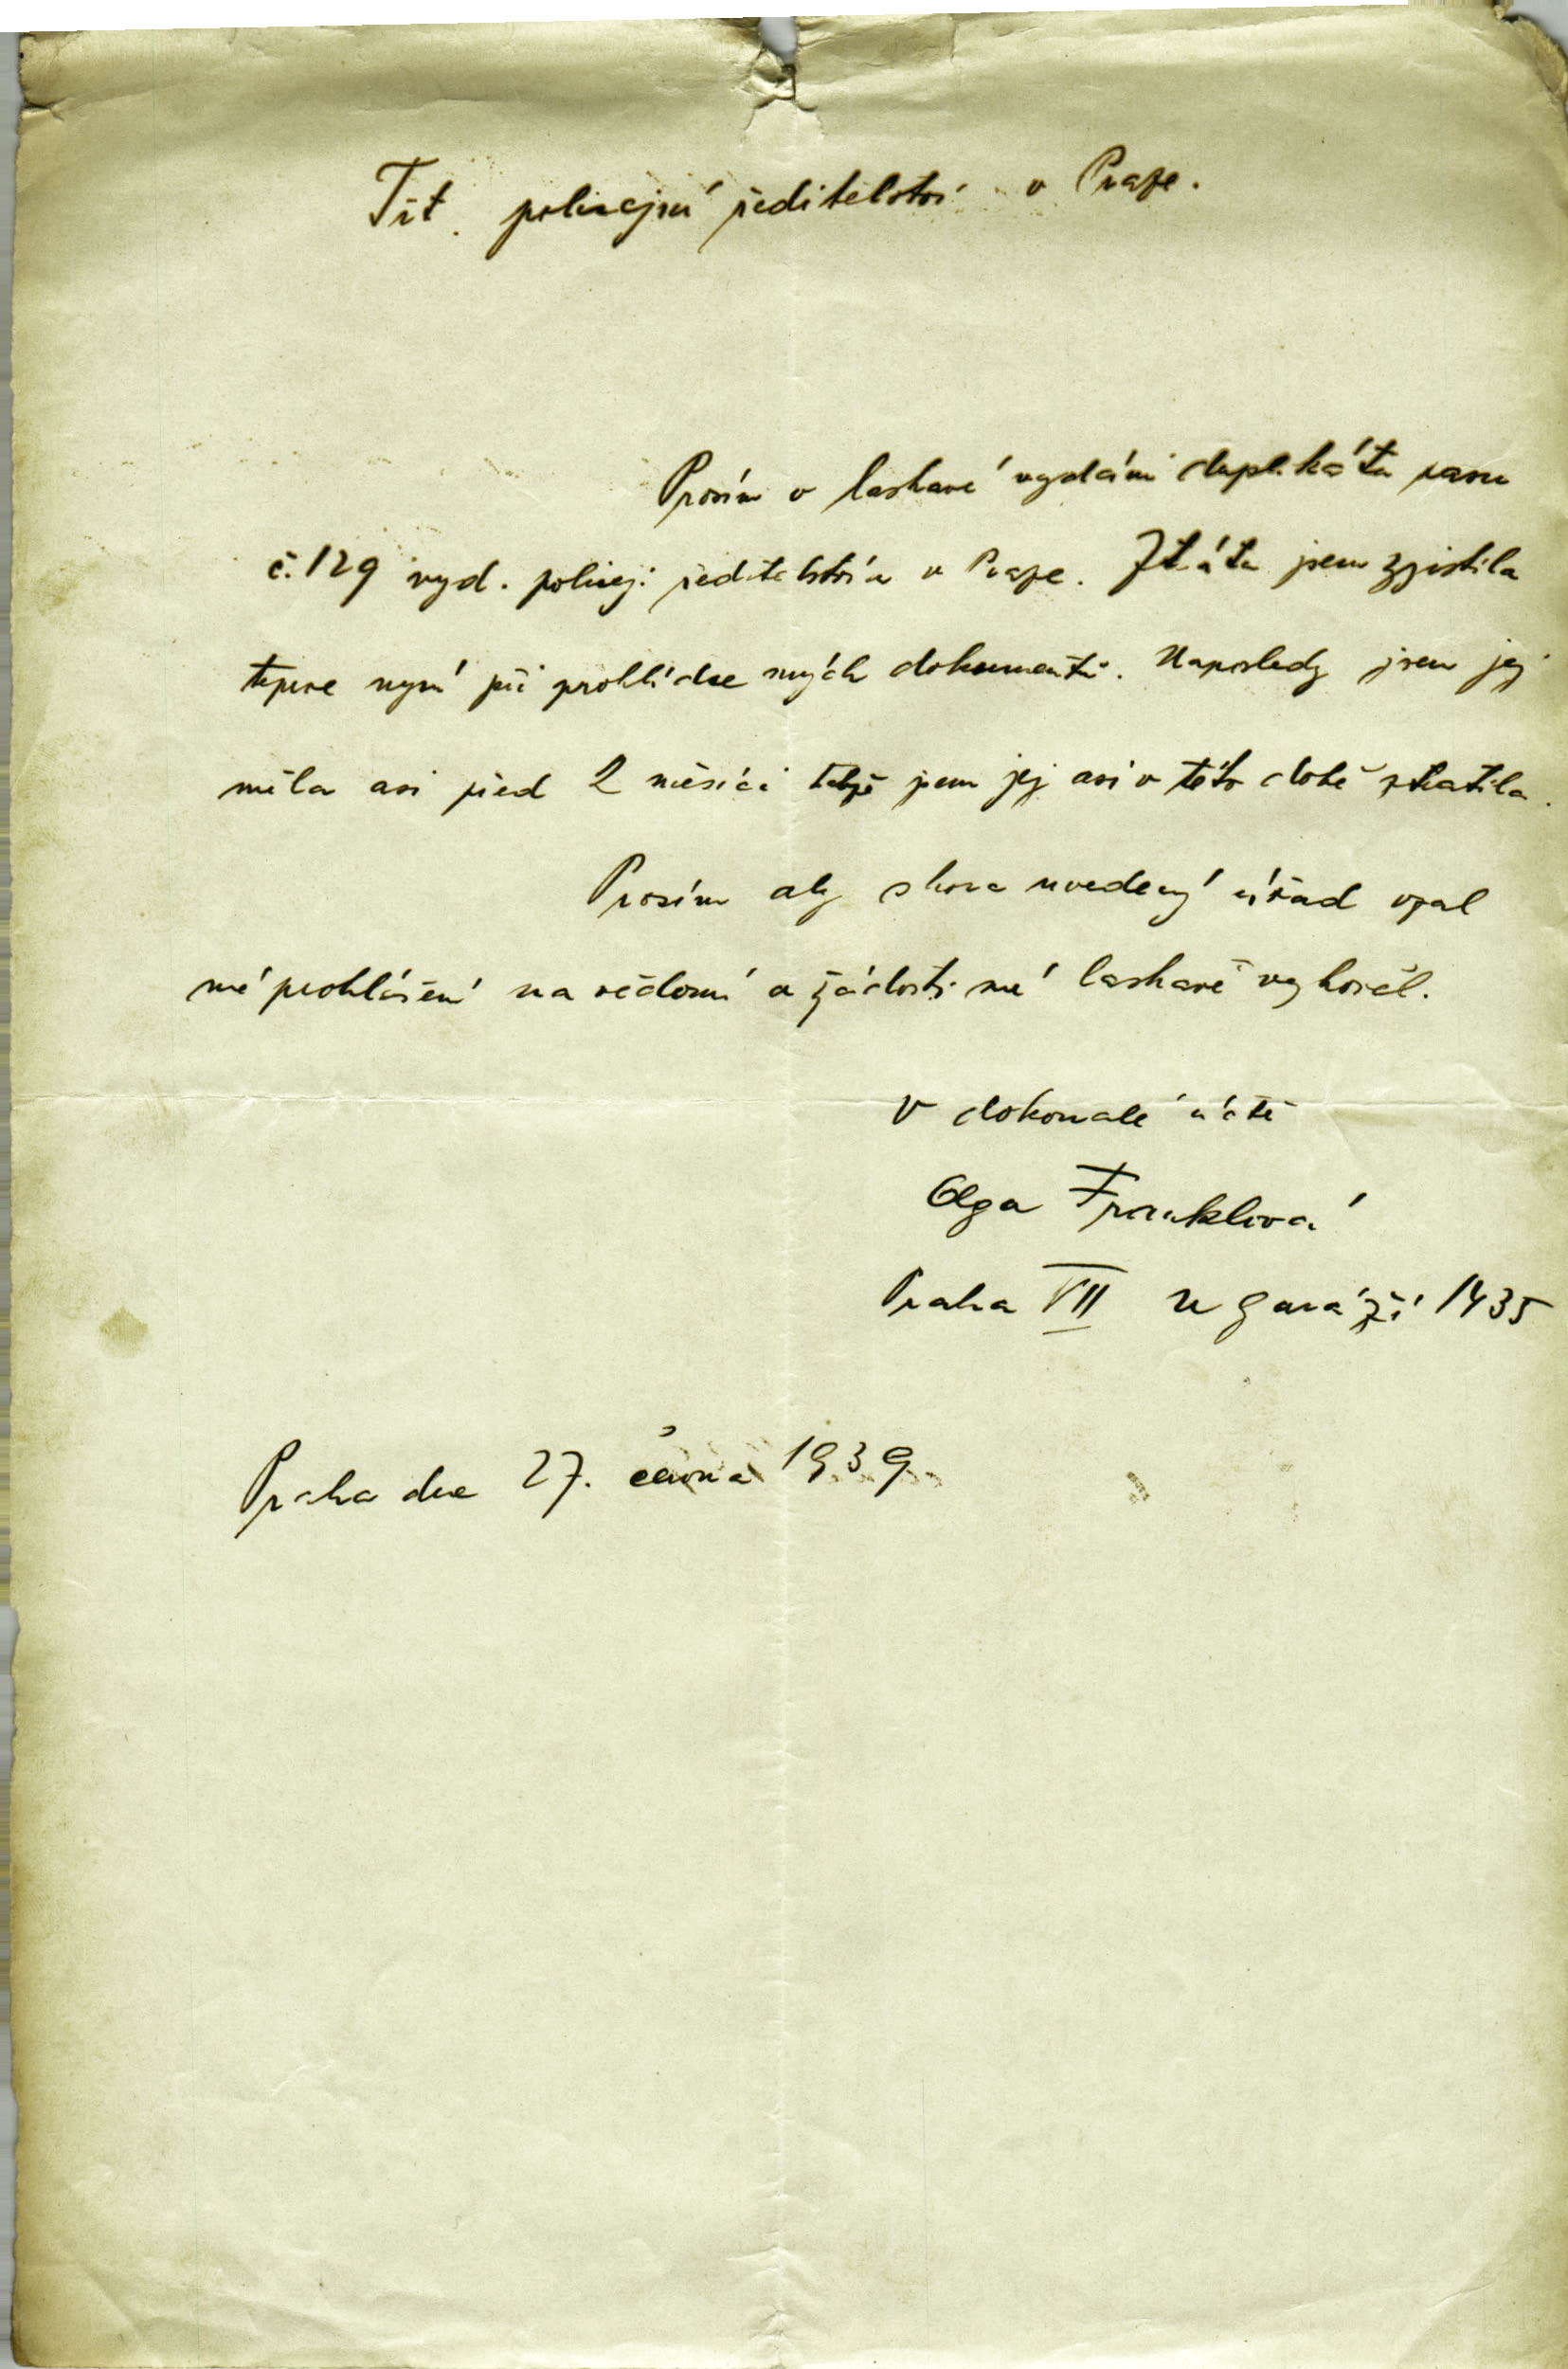 Tit. policejní ředitelství v Praze.
Prosím o laskavé vydání duplikátu pasu
č. 129 vyd. policej. ředitelstvím v Praze. Ztrátu jsem zjistila
teprve nyní při prohlídce mých dokumentů. Naposledy jsem jej
měla asi před 2 měsíci takže jsem jej asi v této době ztratila.
Prosím aby shora uvedený úřad vzal
mé prohlášení na vědomí a žádosti mé laskavě vyhověl.
V dokonalé úctě
Olga Franklová
Praha VII U garáží 1435
Praha dne 27. června 1939.